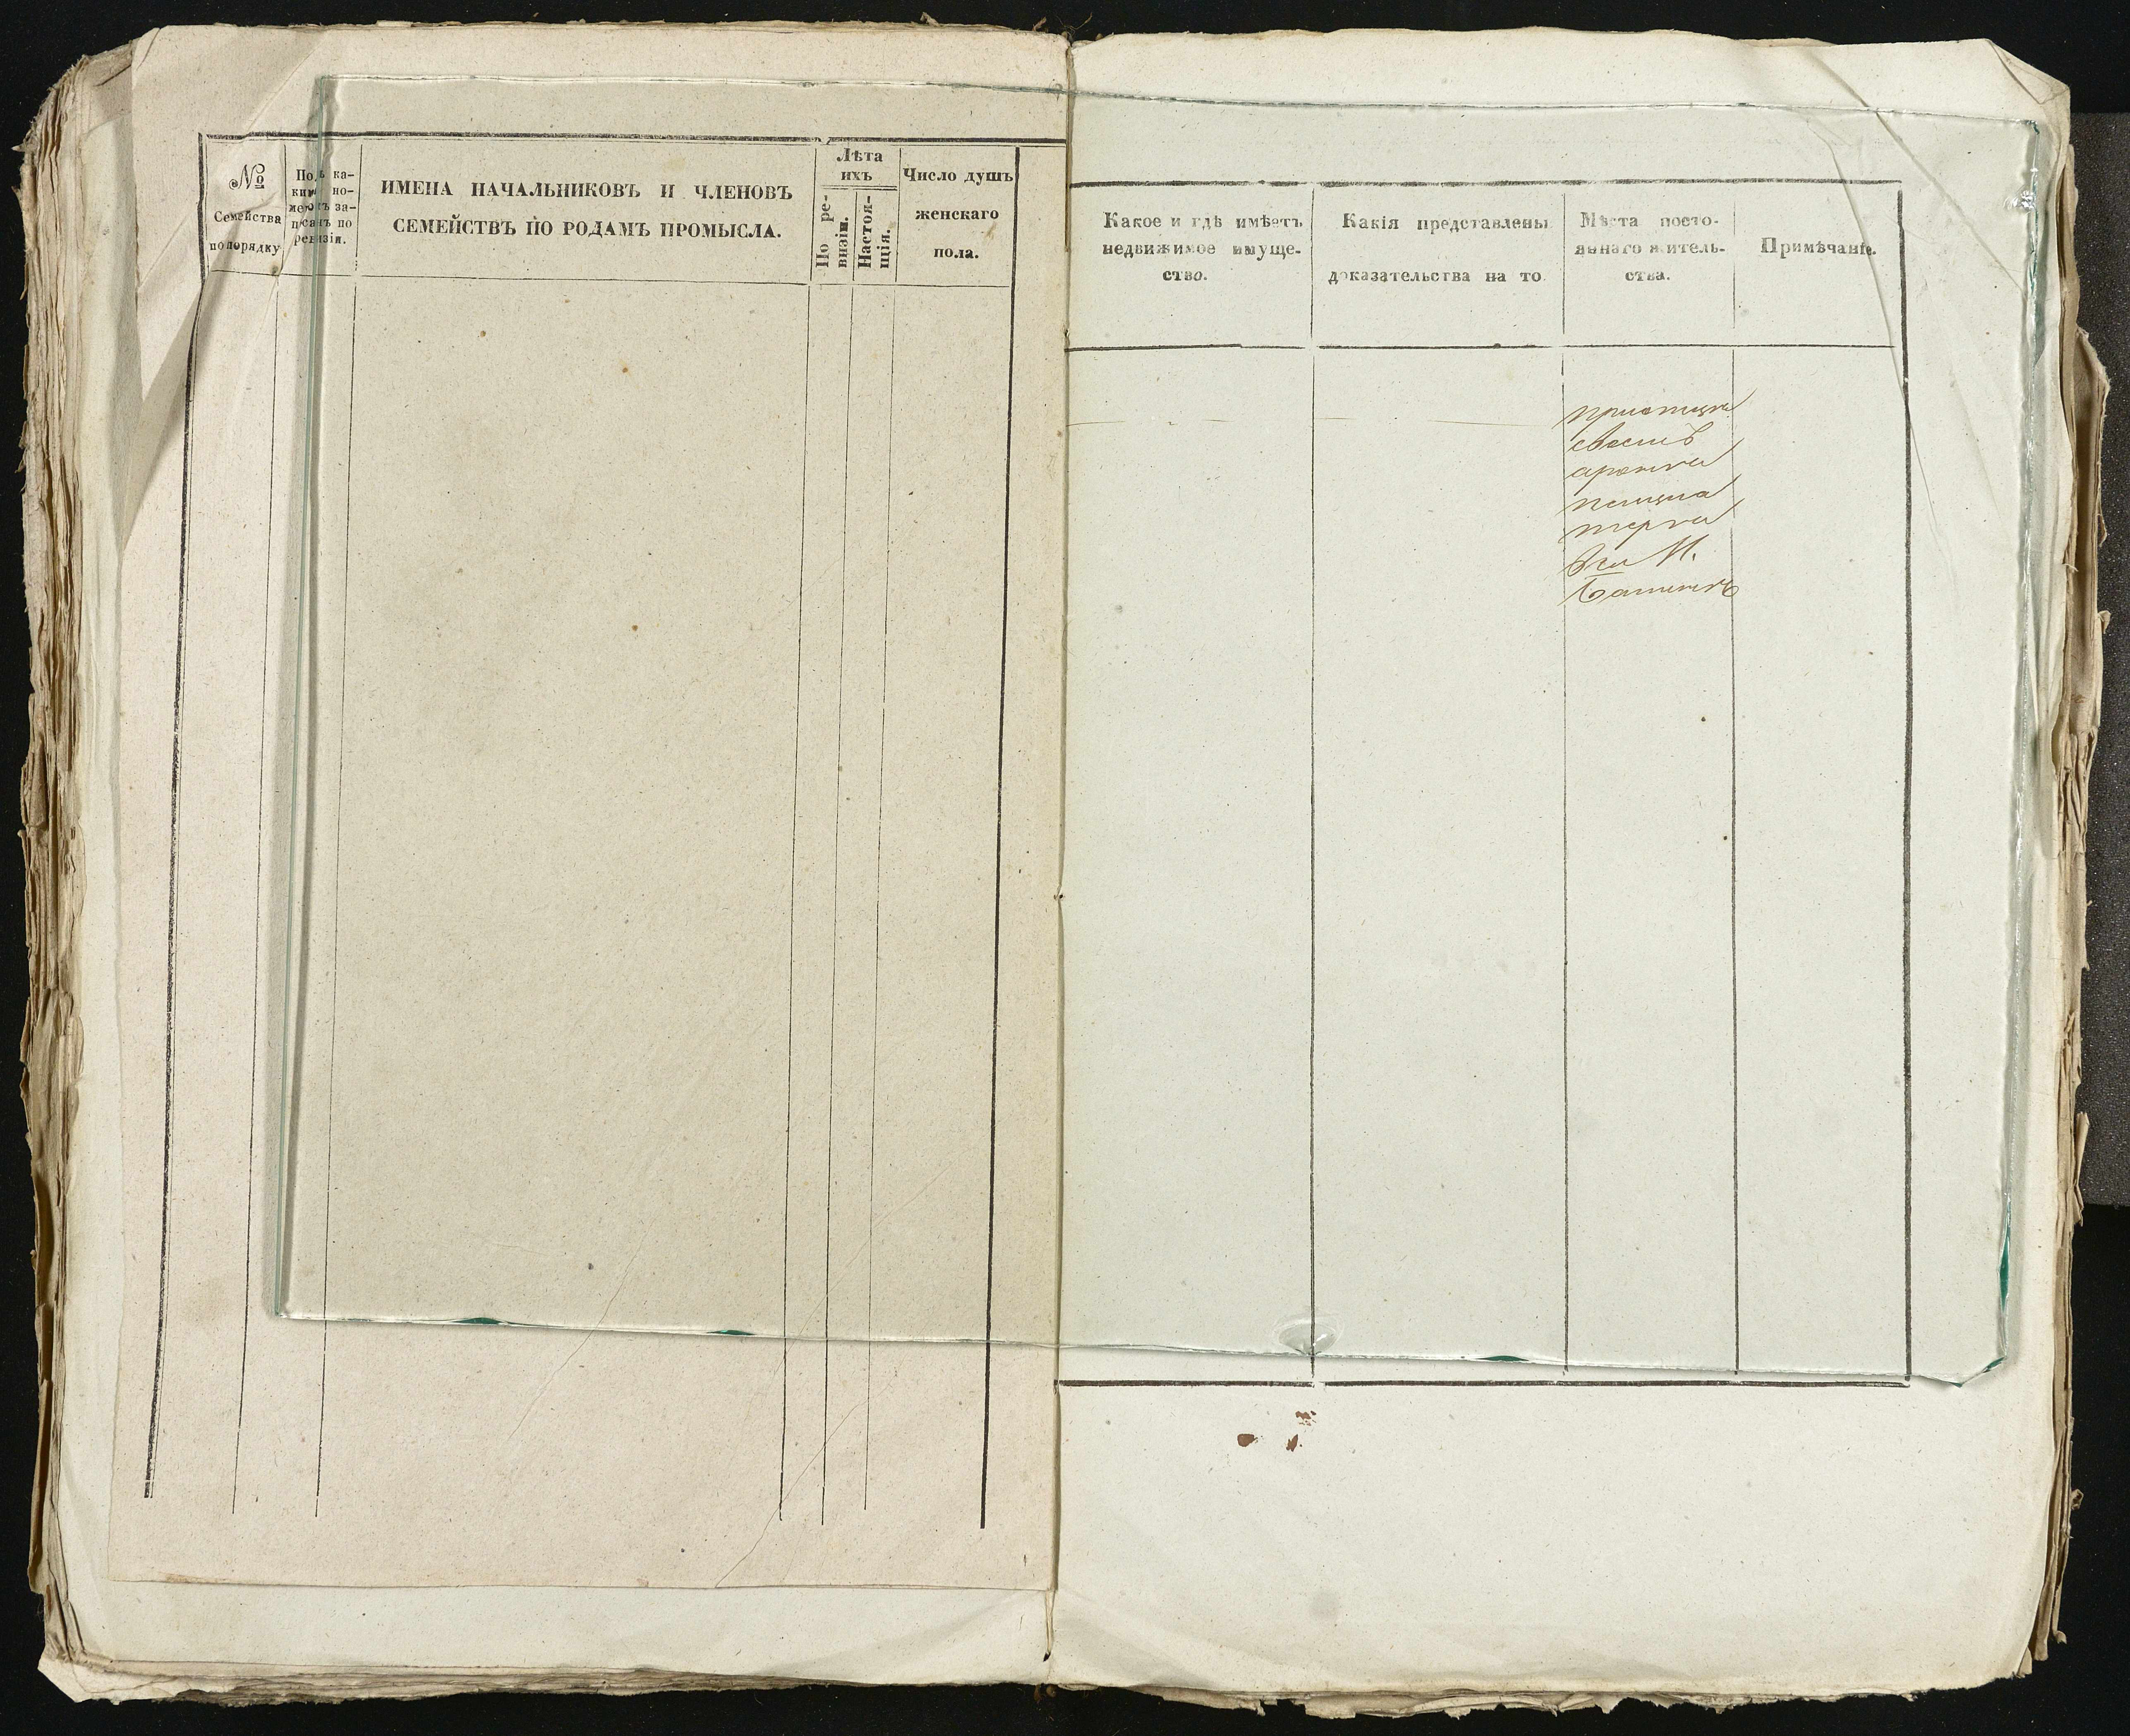 №
Семейства
по порядку
Подъ ка-
кимъ но-
меромъ за-
писанъ по
ревизіи.
ИМЕНА НАЧАЛЬНИКОВЪ И ЧЛЕНОВЪ
СЕМЕЙСТВЪ ПО РОДАМЪ ПРОМЫСЛА.
Лѣта
ихъ
По ре-
визіи.
Настоя-
щія.
Число душъ
женскаго
пола.
Какое и гдѣ имѣетъ
недвижимое имуще-
ство.
Какія представлены
доказательства на то
Мѣста посто-
яннаго житель-
ства.
Примѣчаніе.
при отцѣ
своемъ